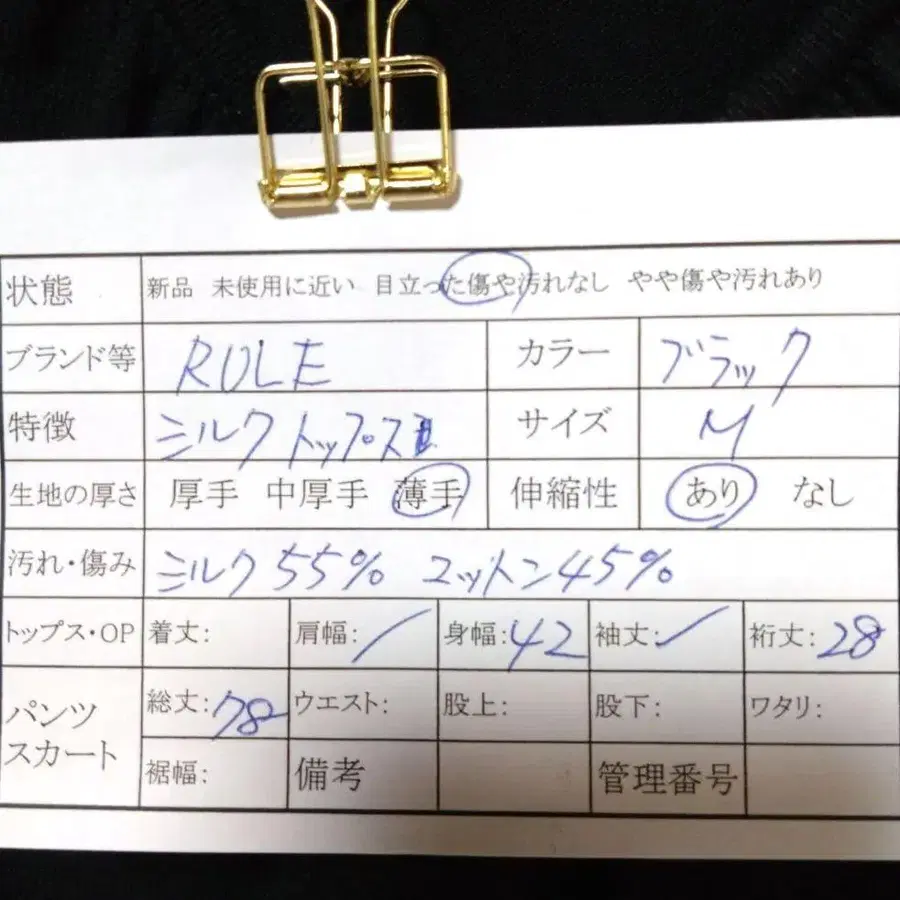 状態 新品 未使用に近い 目立った傷や汚れなし やや傷や汚れあり
ブランド等 ROLE カラー ブラック
特徴 ミルク トップス サイズ M
生地の厚さ 厚手 中厚手 薄手 伸縮性 あり なし
汚れ・傷み ミルク55% コットン45%
トップス・OP 着丈: 肩幅:／ 身幅:42 袖丈:／ 裄丈:28
パンツ スカート 総丈:78 ウエスト: 股上: 股下: ワタリ:
裾幅: 備考 管理番号